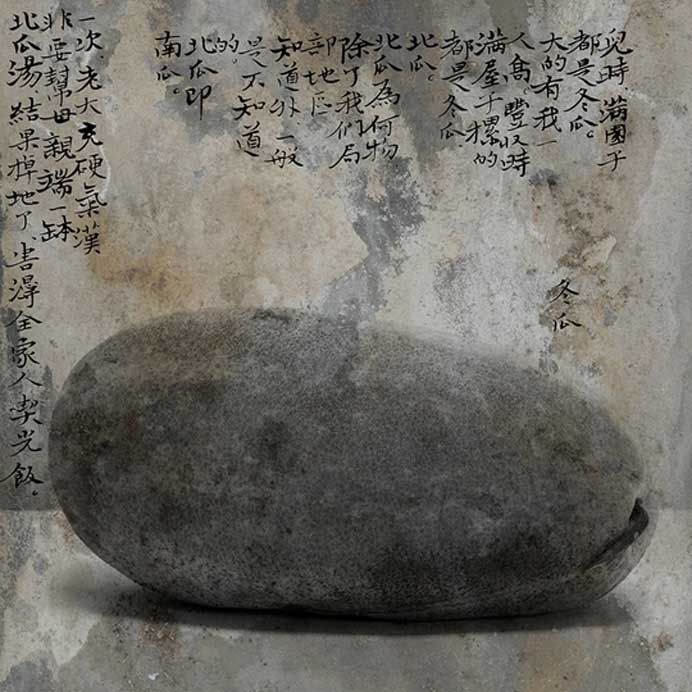 冬瓜
兒時，滿園子
都是冬瓜。
大的有我一
人高。豐收時
滿屋子摞的
都是冬瓜.
北瓜。
北瓜為何物
除了我們局
部地區
知道外，一般
是不知道
的。
北瓜即
南瓜。
一次，老大充硬氣漢
非要幫母親端一缽
北瓜湯結果掉地了，害得全家人喫光飯。